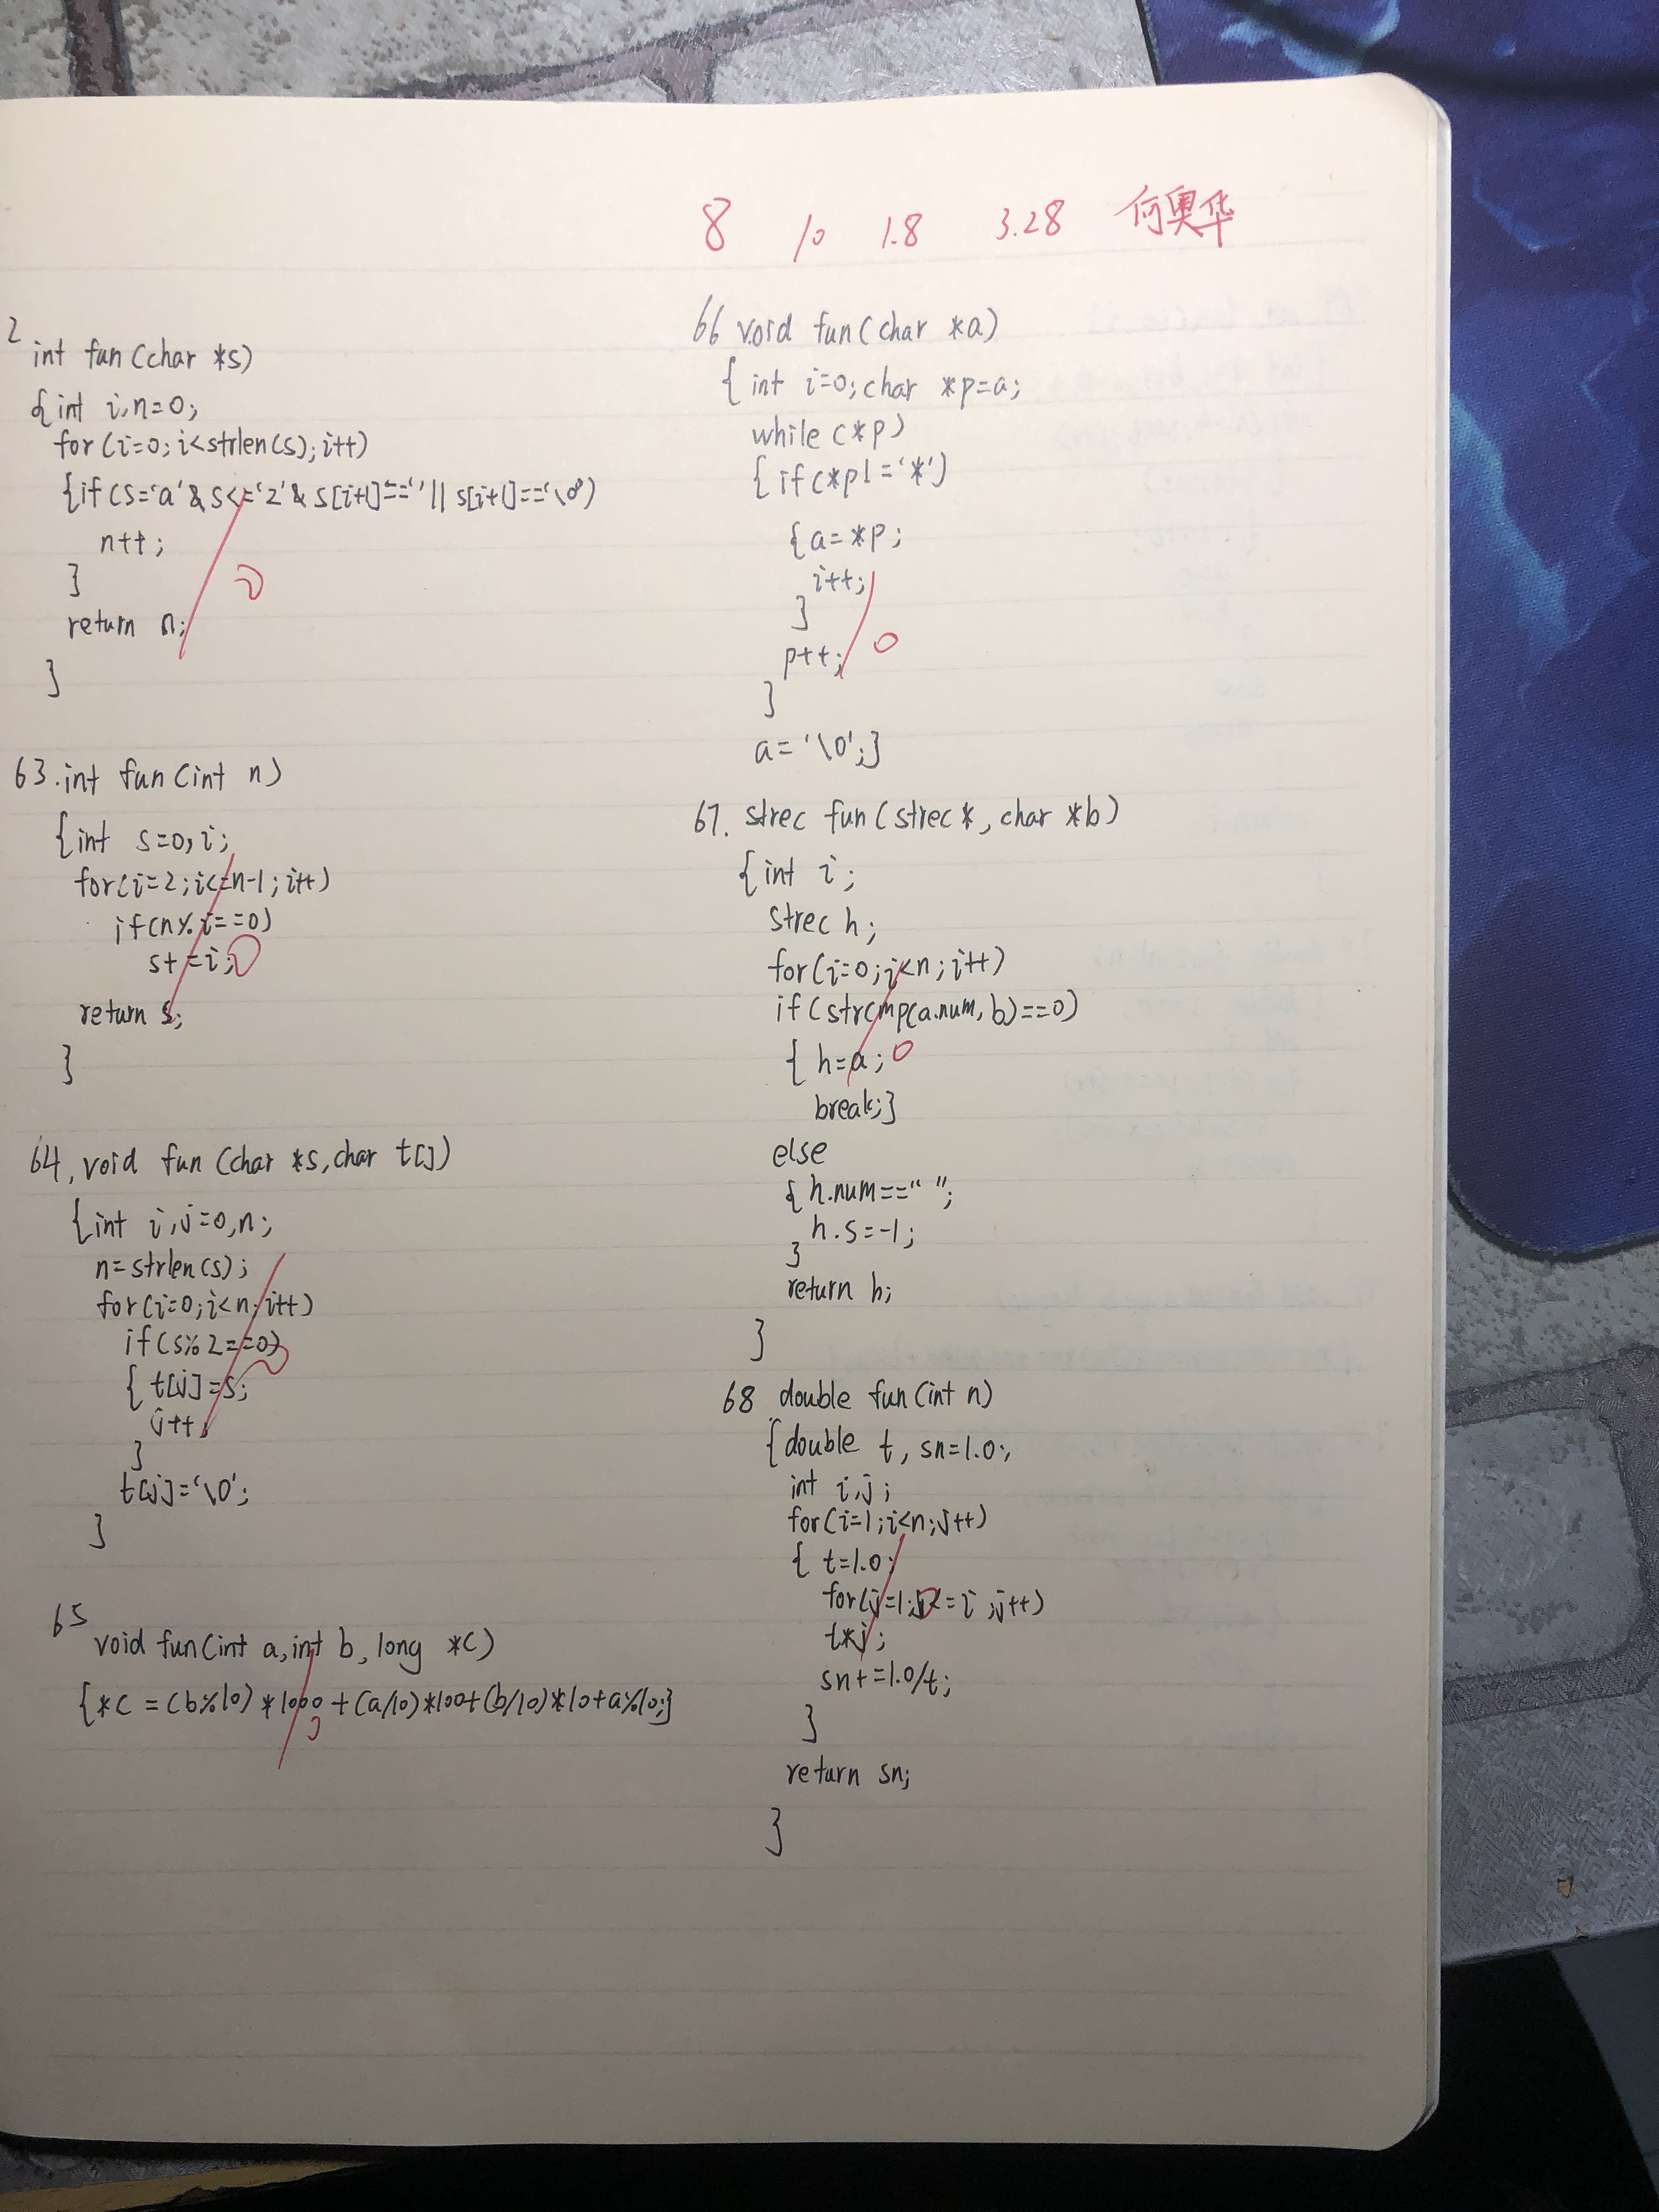 8 10 1.8 3.28 何奥华
2
int fun(char *s)
{int i,n=0;
for(i=0;i<strlen(s);i++)
{if(s='a'&s<='z'& s[i+1]==' '|| s[i+1]=='\0')
n++;
}
return n;
}
63.int fun(int n)
{int s=0,i;
for(i=2;i<=n-1;i++)
if(n%i==0)
s+=i;
return s;
}
64,void fun(char *s,char t[])
{int i,j=0,n;
n=strlen(s);
for(i=0;i<n;i++)
if(s%2==0)
{ t[j]=s;
j++;
}
t[j]='\0';
}
65
void fun(int a,int b,long *c)
{*c=(b%10)*1000+(a/10)*100+(b/10)*10+a%10;}
66 void fun(char *a)
{int i=0;char *p=a;
while(*p)
{if(*p!='*')
{a=*p;
i++;
}
p++;
}
a='\0';}
67. strec fun(strec*,char *b)
{int i;
strec h;
for(i=0;i<n;i++)
if(strcmp(a.num,b)==0)
{ h=a;
break;}
else
{ h.num==" ";
h.s=-1;
}
return h;
}
68 double fun(int n)
{double t, sn=1.0;
int i,j;
for(i=1;i<n;j++)
{ t=1.0;
for(j=1;j<=i;j++)
t*j;
sn+=1.0/t;
}
return sn;
}